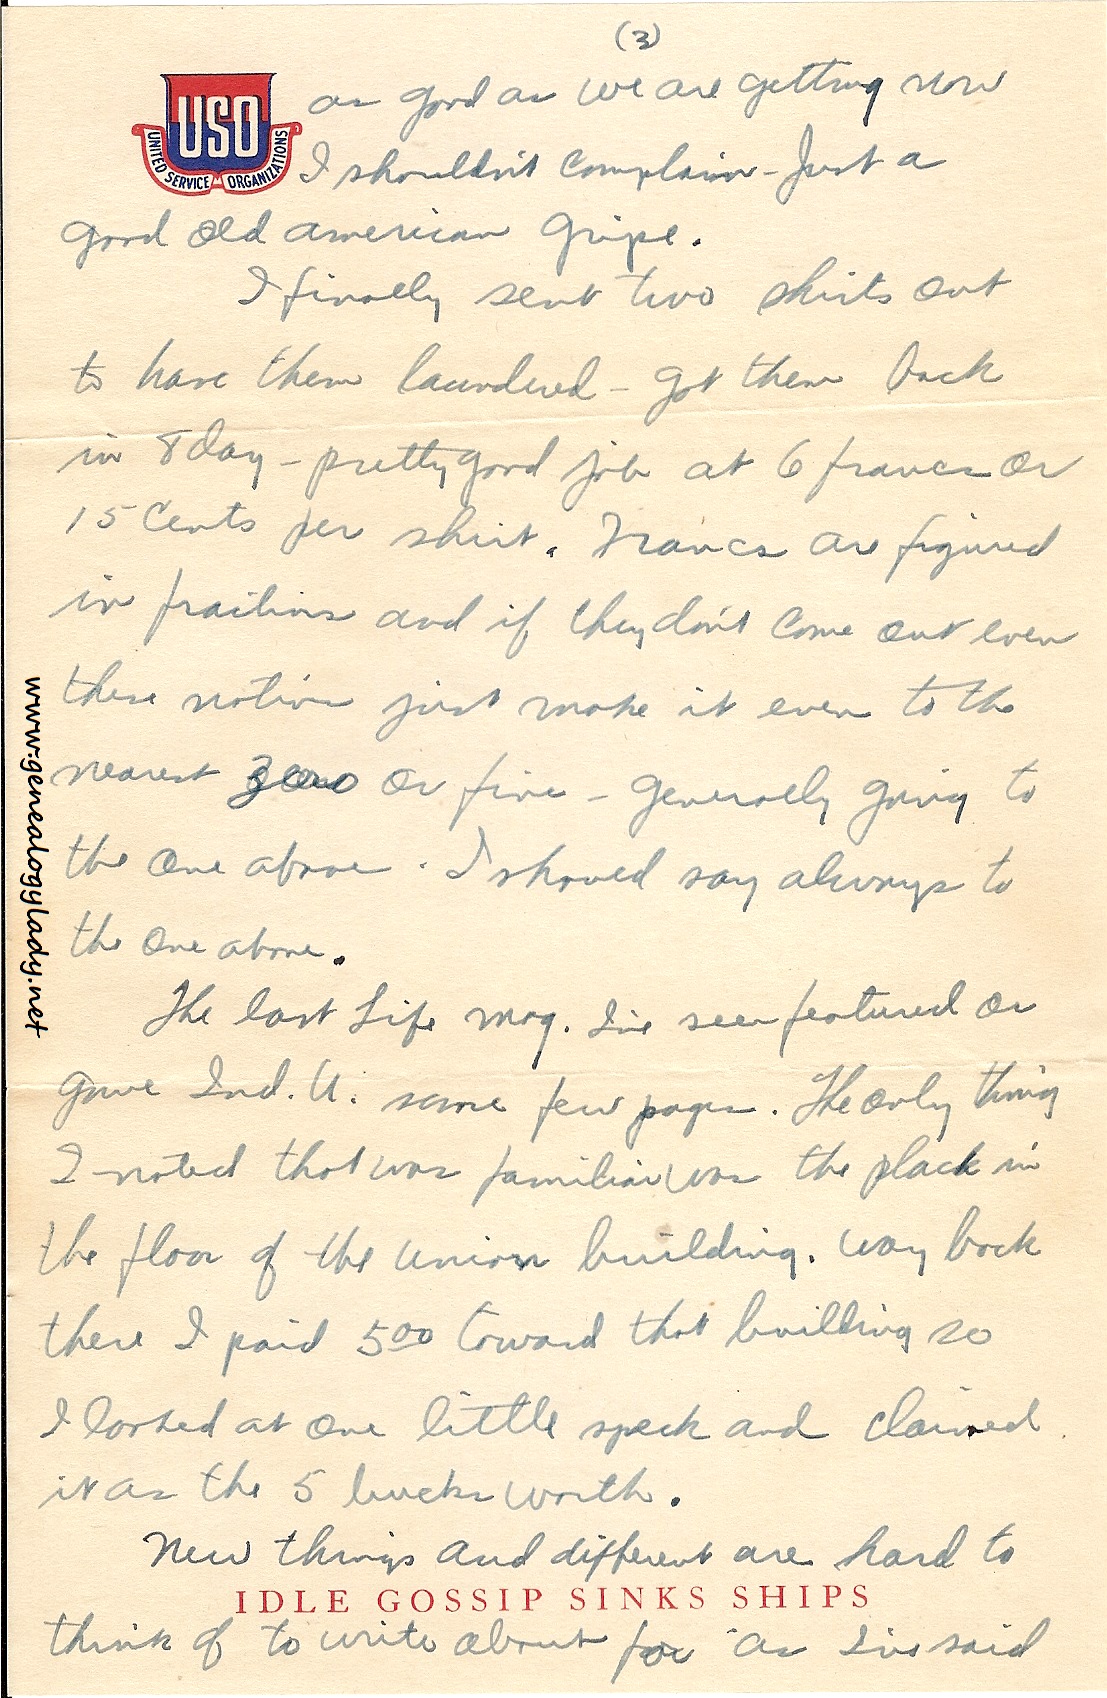 (3)
USO
UNITED SERVICE ORGANIZATIONS
as good as we are getting now
I shouldn't complain - Just a
good old american gripe.
I finally sent two shirts out
to have them laundered - got them back
in 8 day - pretty good job at 6 francs or
15 cents per shirt. Francs are figured
in fractions and if they don't come out even
these natives just make it even to the
nearest zero or five - generally going to
the one above. I should say always to
the one above.
The last Life mag. I've seen featured or
gave Ind. U. some few pages. The only thing
I noted that was familiar was the plack in
the floor of the union building. Way back
there I paid 5 00 toward that building so
I looked at one little speck and claimed
it as the 5 bucks worth.
New things and different are hard to
IDLE GOSSIP SINKS SHIPS
think of to write about for as I've said
www.genealogylady.net